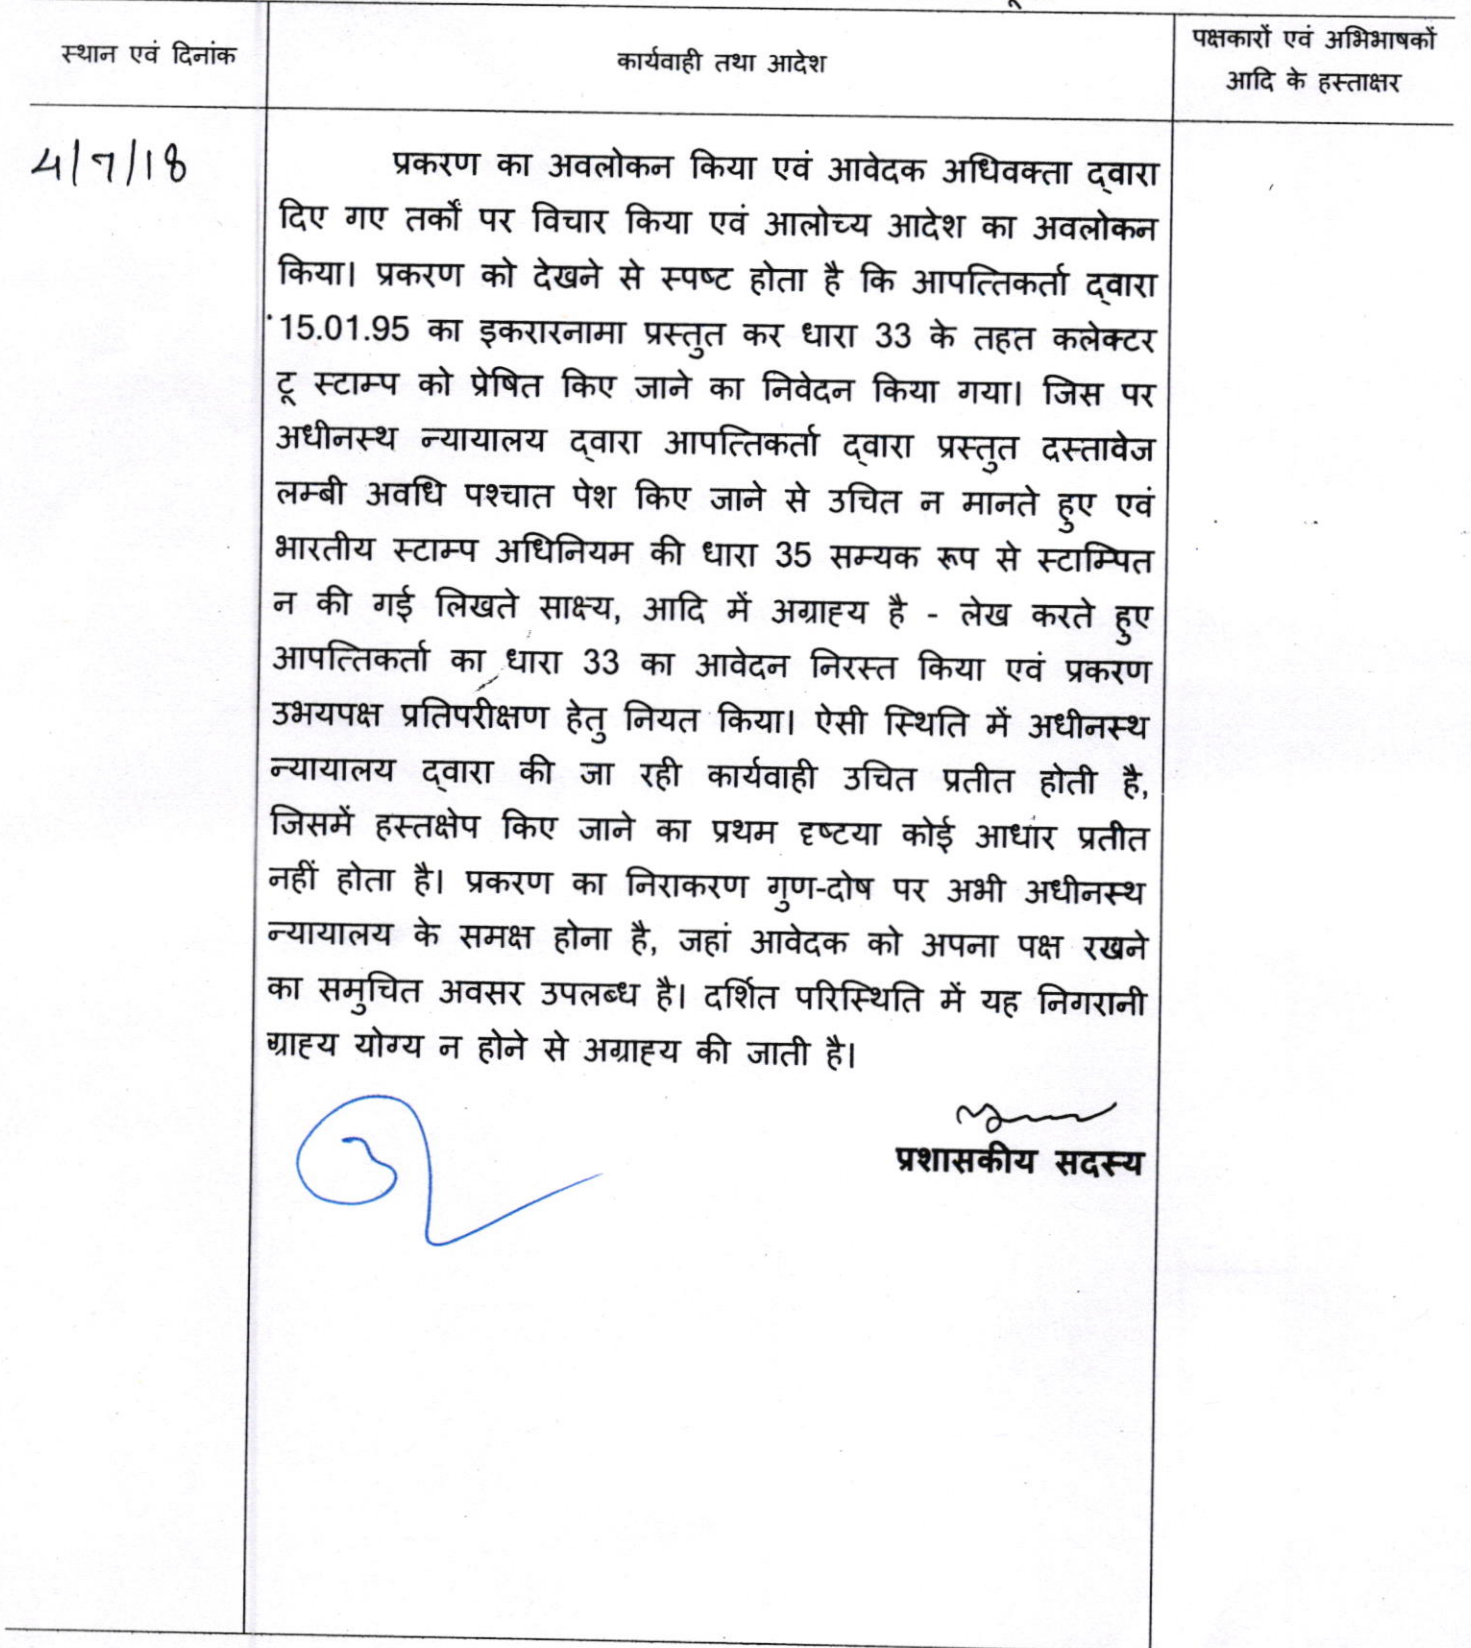 स्थान एवं दिनांक
कार्यवाही तथा आदेश
पक्षकारों एवं अभिभाषकों
आदि के हस्ताक्षर
4/7/18
प्रकरण का अवलोकन किया एवं आवेदक अधिवक्ता द्वारा
दिए गए तर्कों पर विचार किया एवं आलोच्य आदेश का अवलोकन
किया। प्रकरण को देखने से स्पष्ट होता है कि आपत्तिकर्ता द्वारा
15.01.95 का इकरारनामा प्रस्तुत कर धारा 33 के तहत कलेक्टर
टू स्टाम्प को प्रेषित किए जाने का निवेदन किया गया। जिस पर
अधीनस्थ न्यायालय द्वारा आपत्तिकर्ता द्वारा प्रस्तुत दस्तावेज
लम्बी अवधि पश्चात पेश किए जाने से उचित न मानते हुए एवं
भारतीय स्टाम्प अधिनियम की धारा 35 सम्यक रूप से स्टाम्पित
न की गई लिखते साक्ष्य, आदि में अग्राह्य है - लेख करते हुए
आपत्तिकर्ता का धारा 33 का आवेदन निरस्त किया एवं प्रकरण
उभयपक्ष प्रतिपरीक्षण हेतु नियत किया। ऐसी स्थिति में अधीनस्थ
न्यायालय द्वारा की जा रही कार्यवाही उचित प्रतीत होती है,
जिसमें हस्तक्षेप किए जाने का प्रथम दृष्टया कोई आधार प्रतीत
नहीं होता है। प्रकरण का निराकरण गुण-दोष पर अभी अधीनस्थ
न्यायालय के समक्ष होना है, जहां आवेदक को अपना पक्ष रखने
का समुचित अवसर उपलब्ध है। दर्शित परिस्थिति में यह निगरानी
ग्राह्य योग्य न होने से अग्राह्य की जाती है।
प्रशासकीय सदस्य